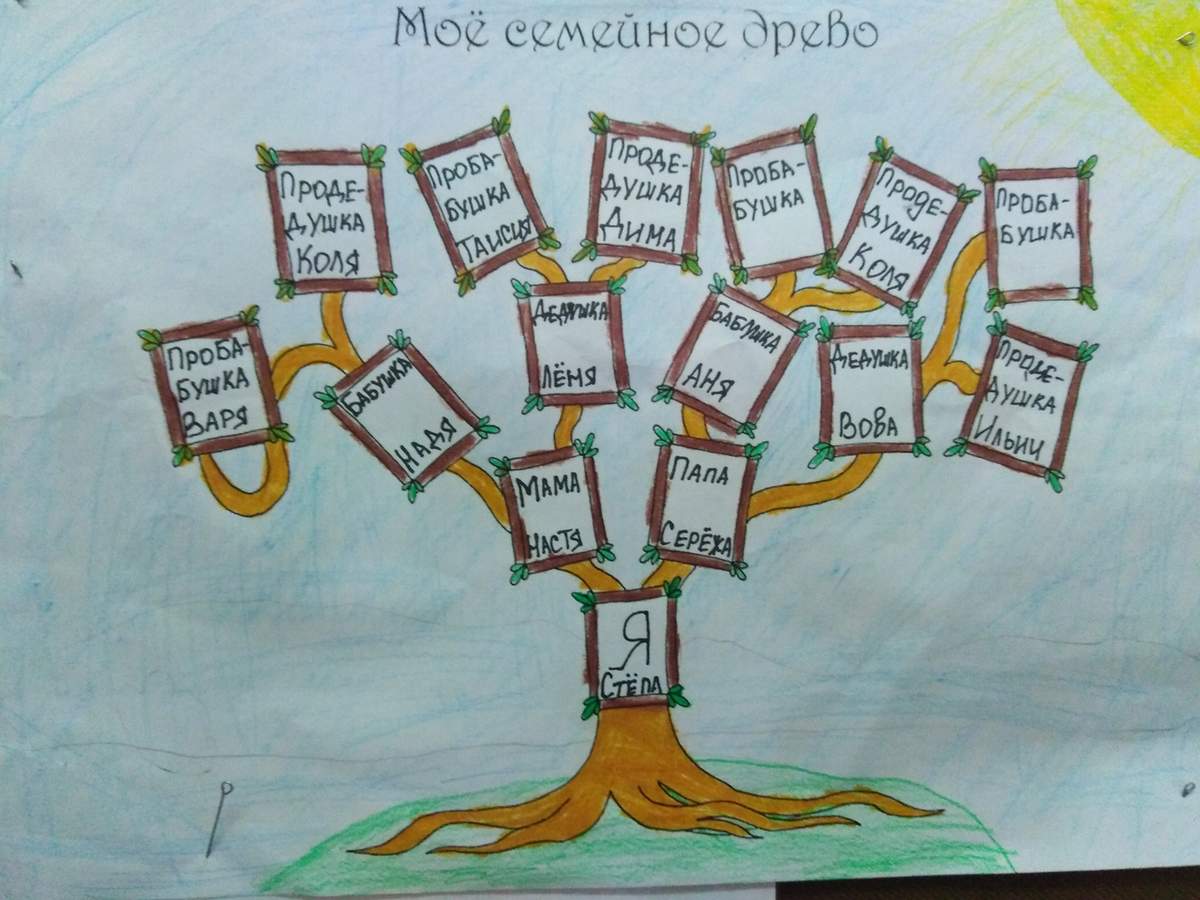 Моё семейное древо
ПРОДЕ-
ДУШКА
КОЛЯ
ПРОБА-
БУШКА
ТАИСИЯ
ПРОДЕ-
ДУШКА
ДИМА
ПРОБА-
БУШКА
ПРОДЕ-
ДУШКА
КОЛЯ
ПРОБА-
БУШКА
ПРОБА-
БУШКА
ВАРЯ
БАБУШКА
НАДЯ
ДЕДУШКА
ЛЁНЯ
БАБУШКА
АНЯ
ДЕДУШКА
ВОВА
ПРОДЕ-
ДУШКА
ИЛЬИЧ
МАМА
НАСТЯ
ПАПА
СЕРЁЖА
Я
СТЁПА